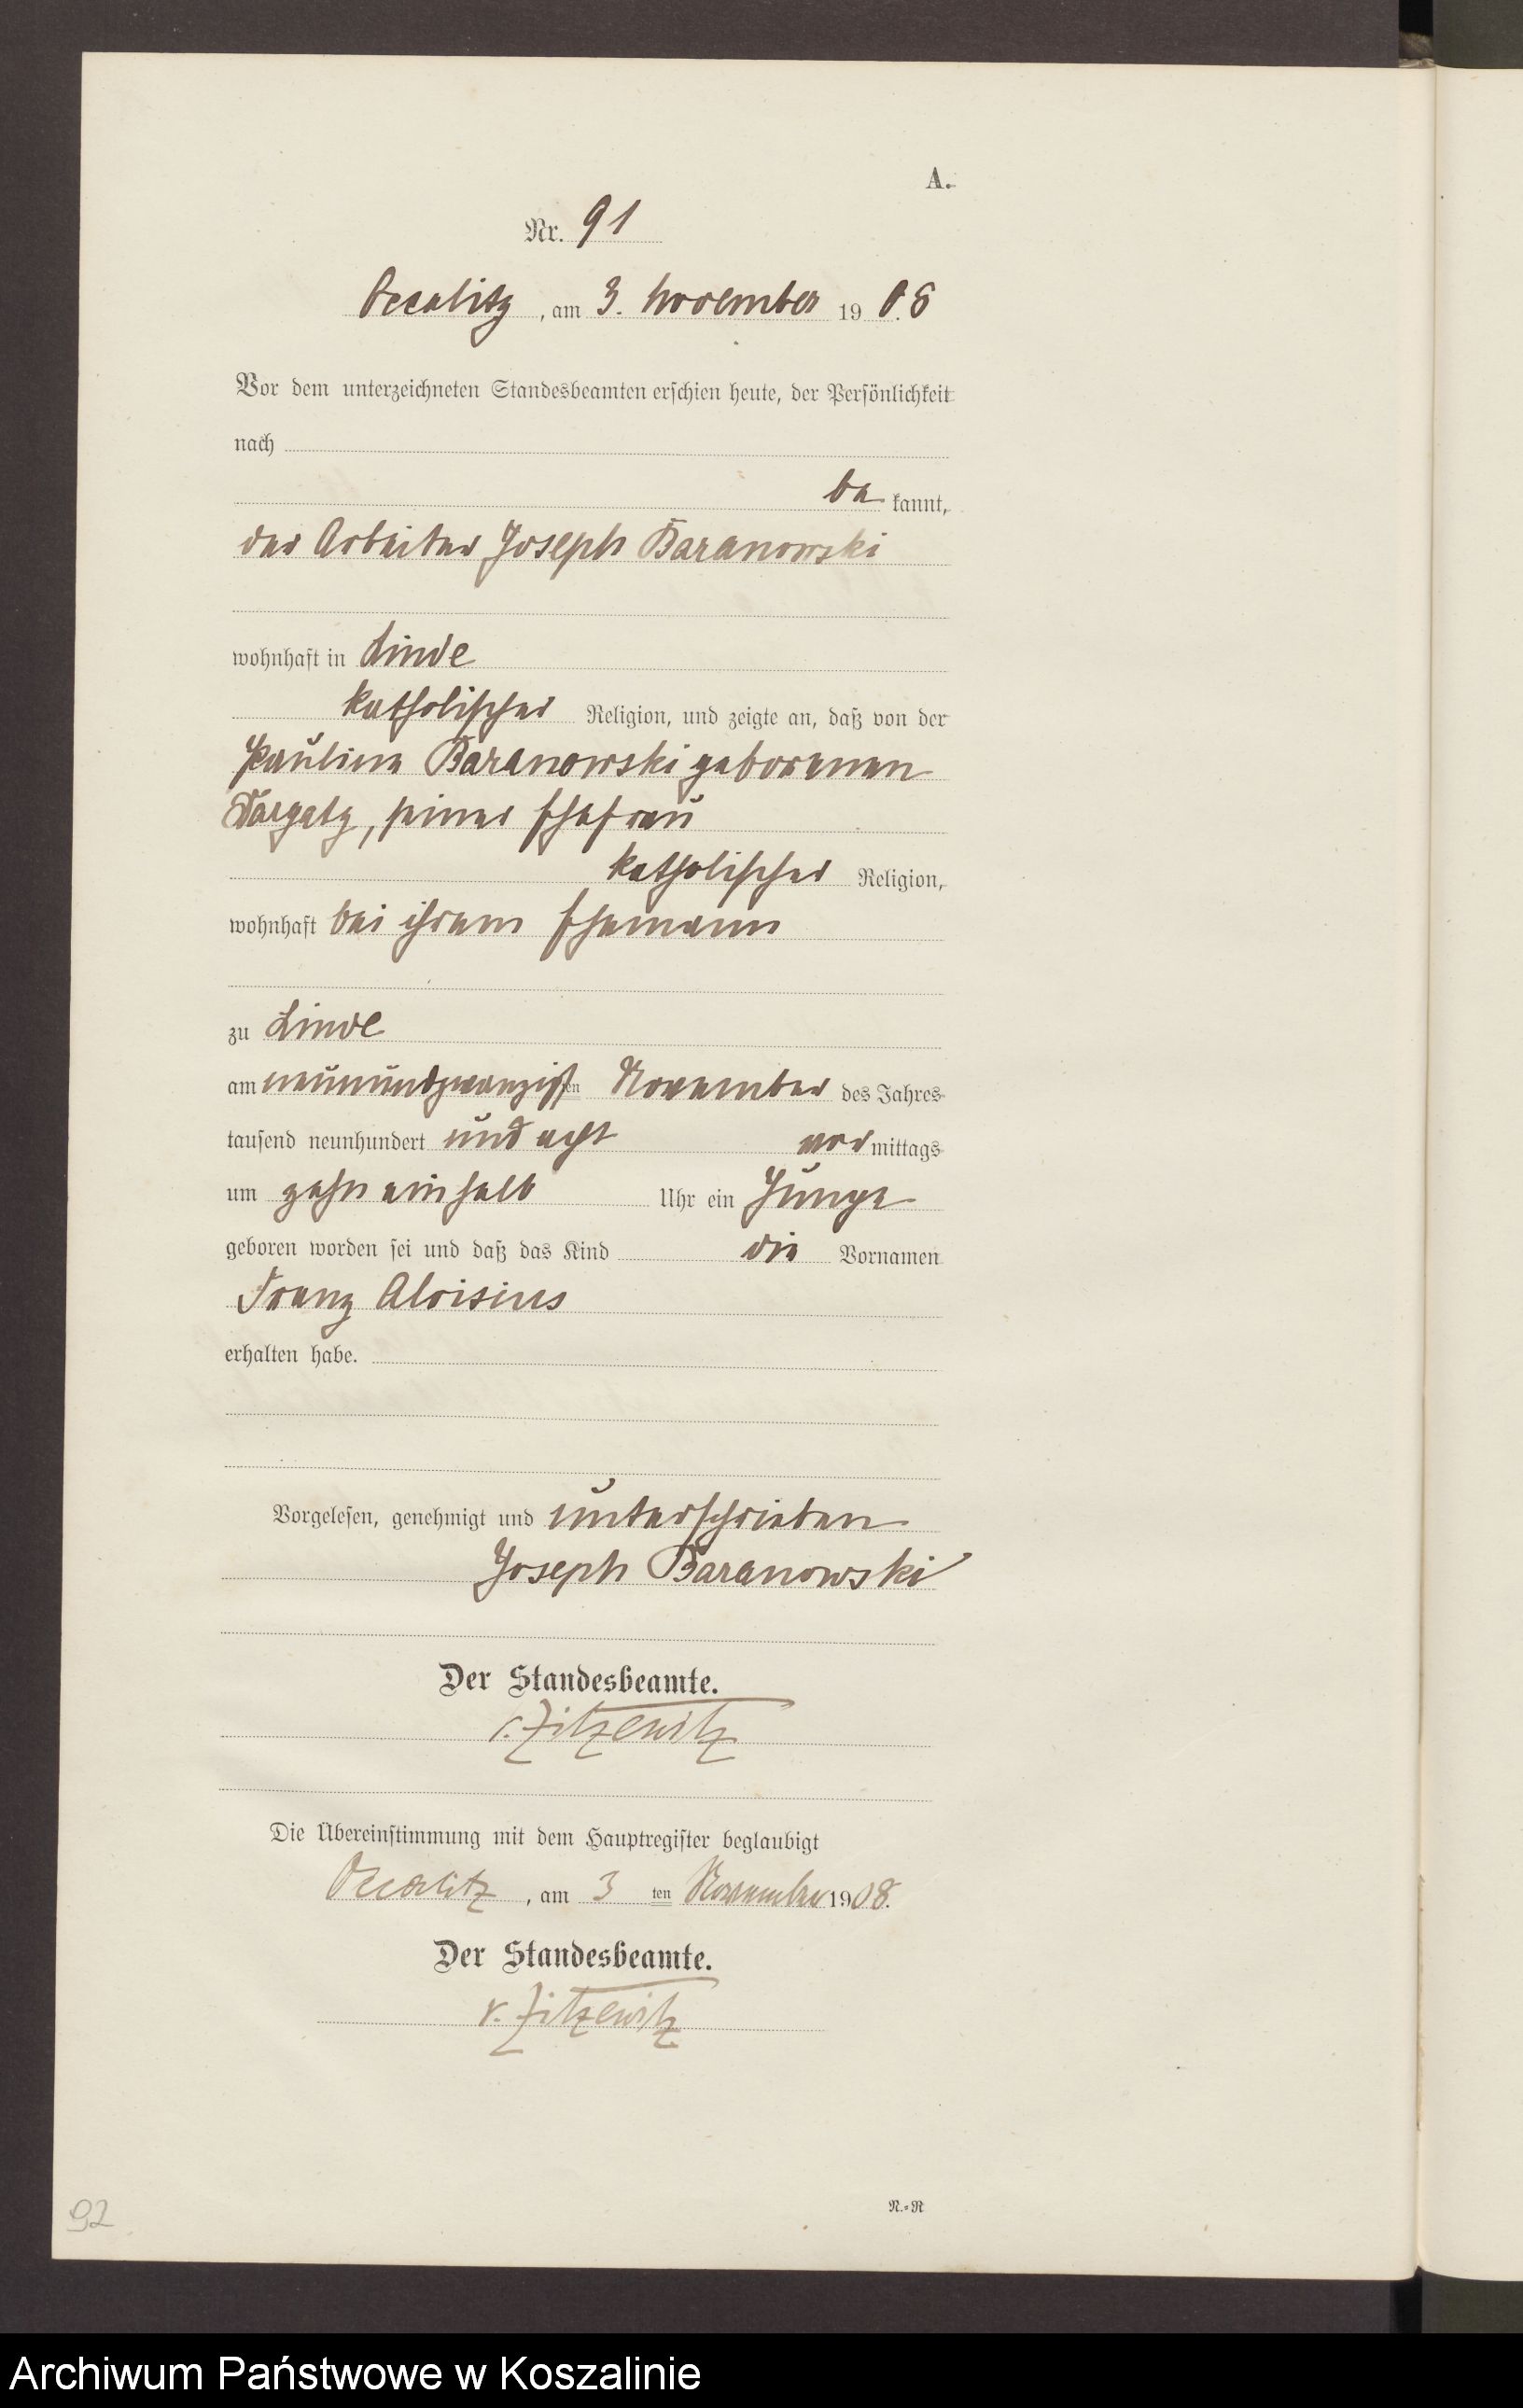 A.
Nr. 91
Occalitz, am 3. November 1908
Vor dem unterzeichneten Standesbeamten erschien heute, der Persönlichkeit
nach
be kannt,
der Arbeiter Joseph Baranowski
wohnhaft in Linde
katholischer Religion, und zeigte an, daß von der
Pauline Baranowski geborenen
Dargatz, seiner Ehefrau
katholischer Religion,
wohnhaft bei ihrem Ehemann
zu Linde
am neunundzwanzigsten November des Jahres
tausend neunhundert und acht vor mittags
um zehn einhalb Uhr ein Junge
geboren worden sei und daß das Kind die Vornamen
Franz Aloisius
erhalten habe.
Vorgelesen, genehmigt und unterschrieben
Joseph Baranowski
Der Standesbeamte.
v. Zitzewitz
Die Übereinstimmung mit dem Hauptregister beglaubigt
Occalitz, am 3 ten November 1908.
Der Standesbeamte.
v. Zitzewitz
N.=R
92
Archiwum Państwowe w Koszalinie